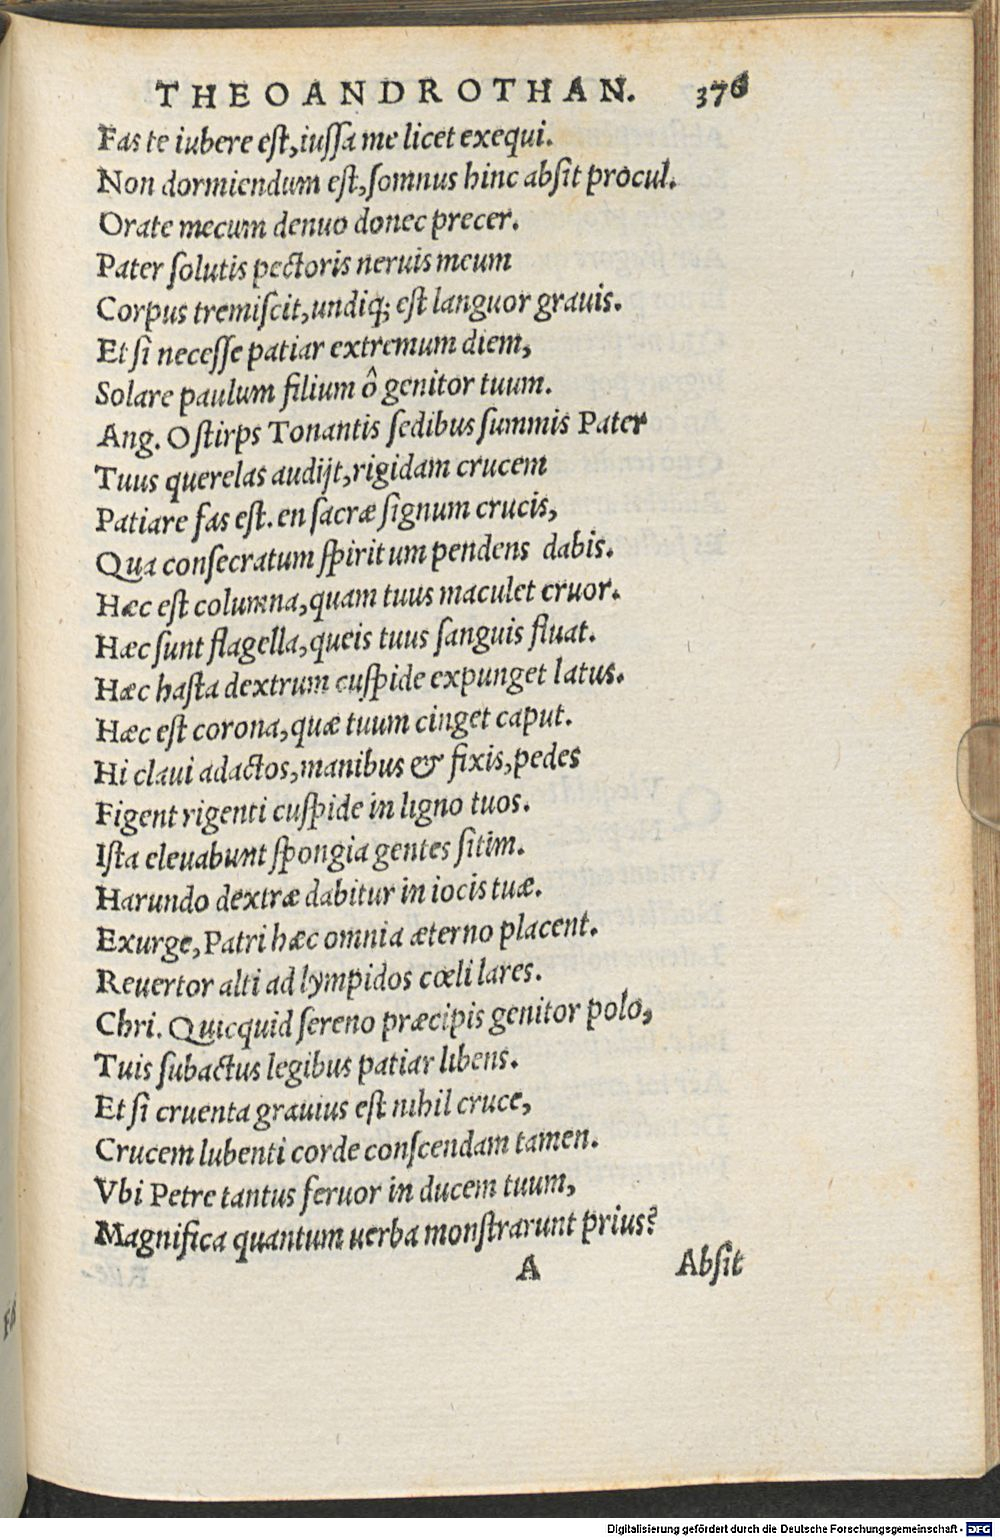 THEOANDROTHAN. 376
Fas te iubere eſt, iuſſa me licet exequi.
Non dormiendum eſt, ſomnus hinc abſit procul.
Orate mecum denuo donec precer.
Pater ſolutis pectoris neruis meum
Corpus tremiſcit, undiq; eſt languor grauis.
Et ſi neceſſe patiar extremum diem,
Solare paulum filium ô genitor tuum.
Ang. O ſtirps Tonantis ſedibus ſummis Pater
Tuus querelas audijt, rigidam crucem
Patiare fas eſt. en ſacræ ſignum crucis,
Qua conſecratum ſpiritum pendens dabis.
Hæc eſt columna, quam tuus maculet cruor.
Hæc ſunt flagella, queis tuus ſanguis fluat.
Hæc haſta dextrum cuſpide expunget latus.
Hæc eſt corona, quæ tuum cinget caput.
Hi claui adactos, manibus & fixis, pedes
Figent rigenti cuſpide in ligno tuos.
Iſta eleuabunt ſpongia gentes ſitim.
Harundo dextræ dabitur in iocis tuæ.
Exurge, Patri hæc omnia æterno placent.
Reuertor alti ad lympidos cœli lares.
Chri. Quicquid ſereno præcipis genitor polo,
Tuis ſubactus legibus patiar libens.
Et ſi cruenta grauius eſt nihil cruce,
Crucem lubenti corde conſcendam tamen.
Vbi Petre tantus feruor in ducem tuum,
Magnifica quantum uerba monſtrarunt prius?
A Abſit
Digitalisierung gefördert durch die Deutsche Forschungsgemeinschaft - DFG